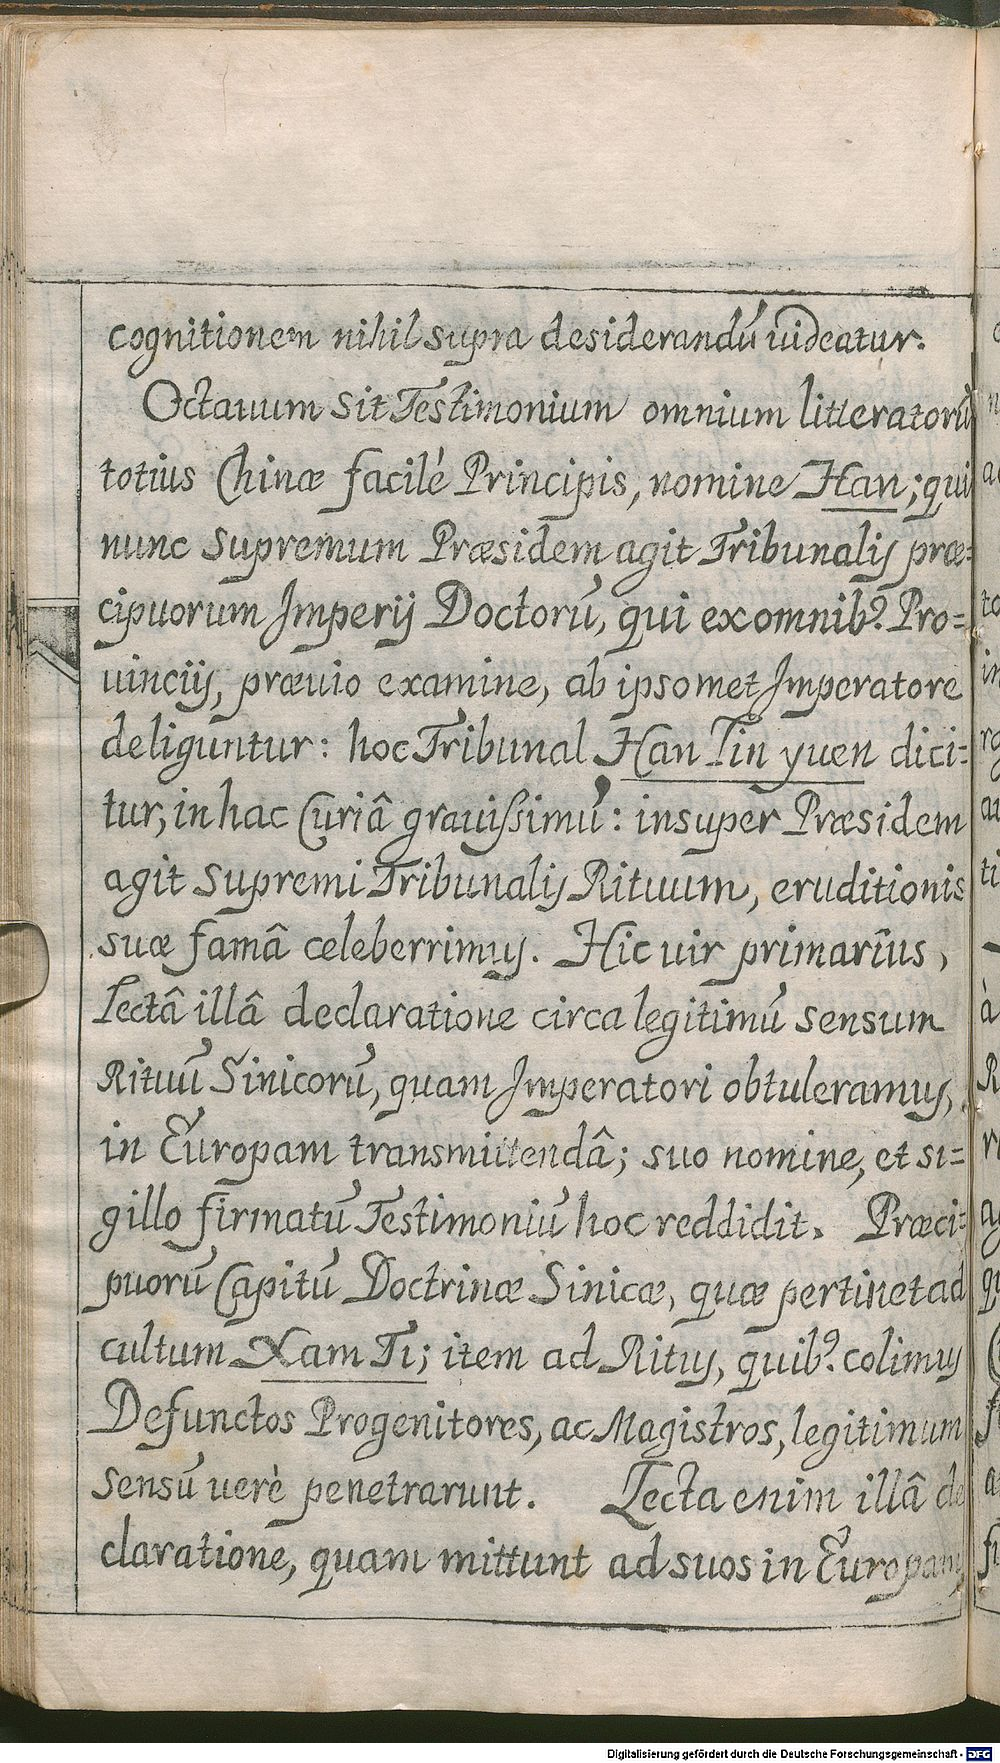 cognitionem nihil supra desiderandũ uideatur.
Octauum sit Testimonium omnium litteratorũ
totius Chinæ facilè Principis, nomine Han; qui
nunc Supremum Præsidem agit Tribunalis præ=
cipuorum Imperij Doctorũ, qui ex omnib9. Pro=
uincijs, præuio examine, ab ipsomet Imperatore
deliguntur: hoc Tribunal Han Lin yuen dici=
tur, in hac Curiâ grauissimũ: insuper Præsidem
agit Supremi Tribunalis Rituum, eruditionis
suæ famâ celeberrimus. Hic uir primarius,
Lectâ illâ declaratione circa legitimũ sensum
Rituũ Sinicorũ, quam Imperatori obtuleramus,
in Europam transmittendâ; suo nomine, et si=
gillo firmatũ Testimoniũ hoc reddidit. Præci=
puorũ Capitũ Doctrinæ Sinicæ, quæ pertinet ad
cultum Xam Ti; item ad Ritus, quib9. colimus
Defunctos Progenitores, ac Magistros, legitimum
sensũ uerè penetrarunt. Lecta enim illâ de
claratione, quam mittunt ad suos in Europam
Digitalisierung gefördert durch die Deutsche Forschungsgemeinschaft - DFG